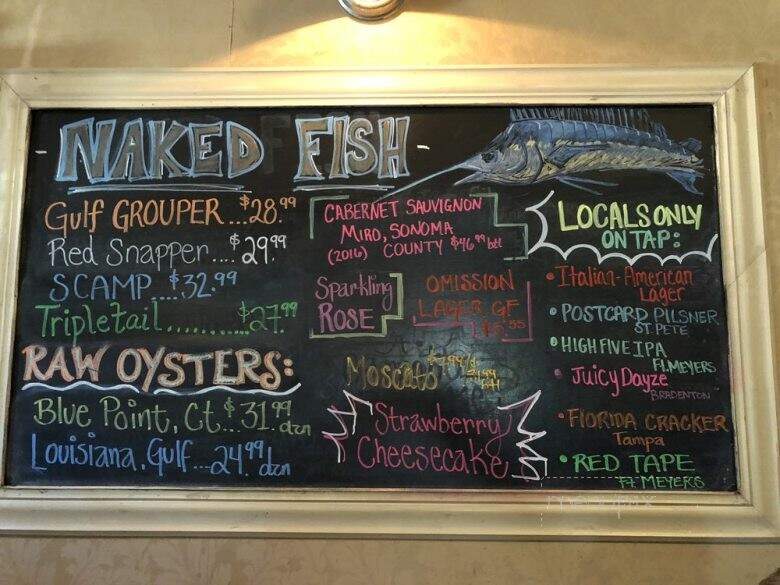 NAKED FISH
Gulf GROUPER...$28.99
Red Snapper....$29.99
SCAMP....$32.99
Tripletail..........$27.99
RAW OYSTERS:
Blue Point, Ct..$31.99 dzn
Louisiana, Gulf...24.99 dzn
CABERNET SAUVIGNON
MIRO, SONOMA
(2016) COUNTY $46.99 btl
Sparkling
ROSE
OMISSION
LAGER GF
Moscato
Strawberry
Cheesecake
LOCALS ONLY
ON TAP:
• Italian-American
Lager
• POSTCARD PILSNER
ST. PETE
• HIGH FIVE IPA
Ft. MEYERS
• Juicy Dayze
BRADENTON
• FlORIDA CRACKER
Tampa
• RED TAPE
Ft. MEYERS